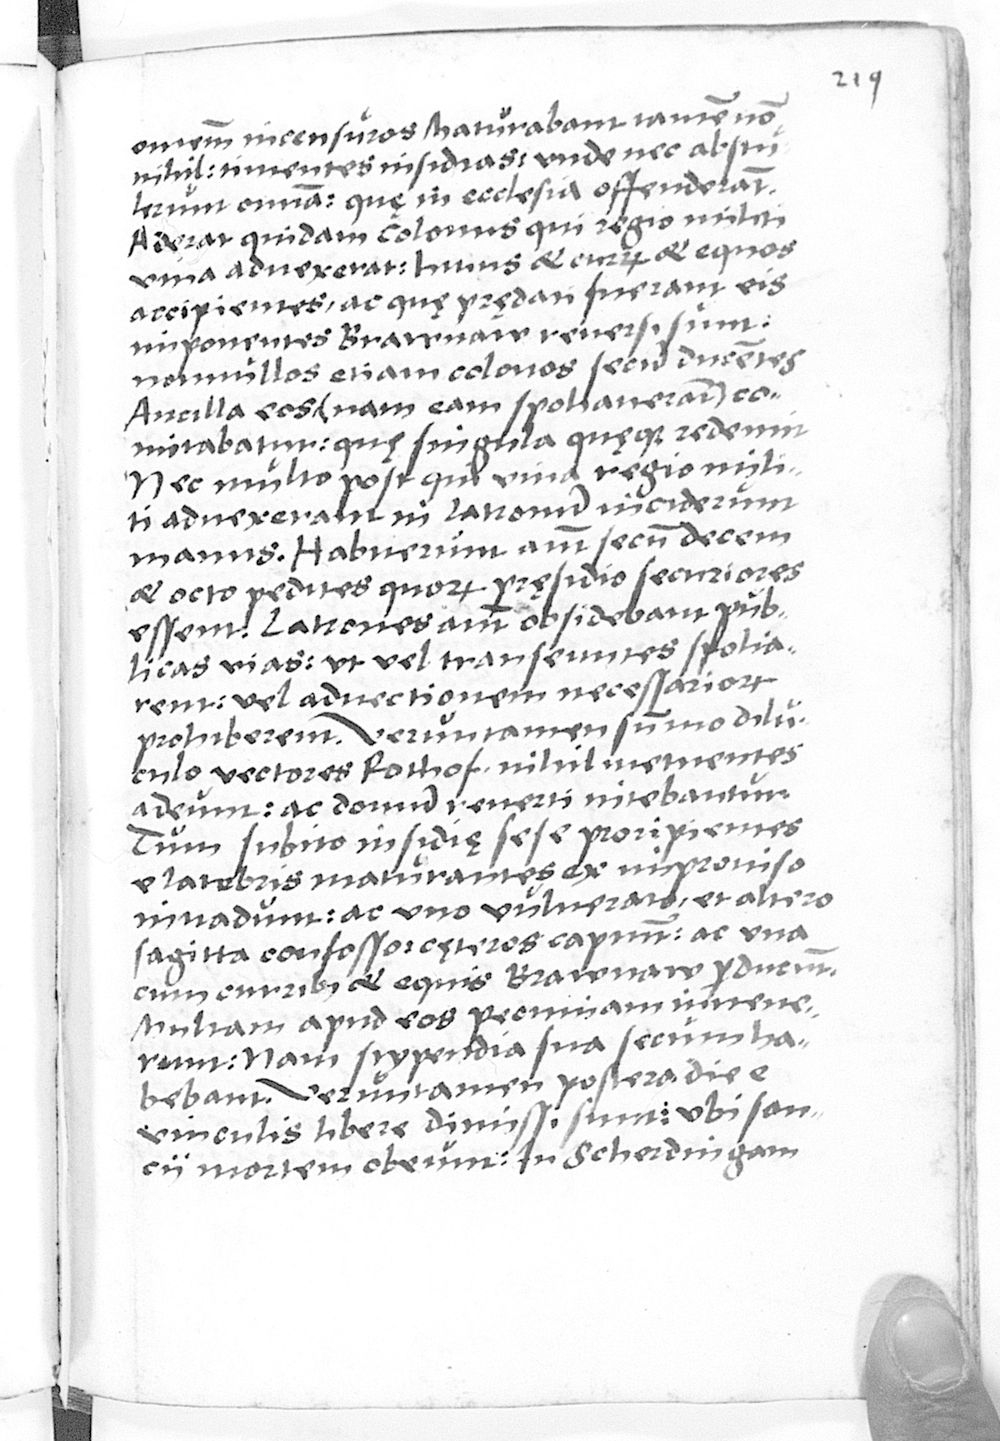 219
omem̄ incensuros Maturabant tamē nō
nihil: timentes insidias: vnde nec abstu
lerunt omnia: quę in ecclesia offenderāt.
Aderat quidam Colonus qui regio militi
vina aduexerat: huius & currꝫ & equos
accipientes, ac quę prędati fuerant eis
imponentes Brawnaw reuersi sunt:
nonnullos etiam colonos secū ducētes
Ancilla eos (nam eam spoliauerāt) co-
mitabatur: quę singula quęqꝫ redemit
Nec multo post qui vina regio mili-
ti aduexerant in Latronū inciderunt
manus. Habuerunt aūt secū decem
& octo pedites quorꝝ pręsidio securiores
essent. Latrones aūt obsidebant pub-
licas vias: vt vel transeuntes spolia-
rent: vel aduectionem necessariorꝝ
prohiberent. Veruntamen sūmo dilu-
culo vectores Rothof. nihil metuentes
adeunt: ac domū reuerti nitebantur
Tum subito insidię sese proripientes
e latebris maturantes ex improuiso
inuadunt: ac vno vulnerato, et altero
sagitta confosso: cęteros capiūt: ac vna
cum curribꝫ & equis Brawnaw ꝓducūt.
Multam apud eos pecuniam inuene-
runt: Nam stypendia sua secum ha-
bebant. Veruntamen postera die e
vinculis libere dimissi sunt: vbi sau-
cii mortem obeunt: In Scherdingam